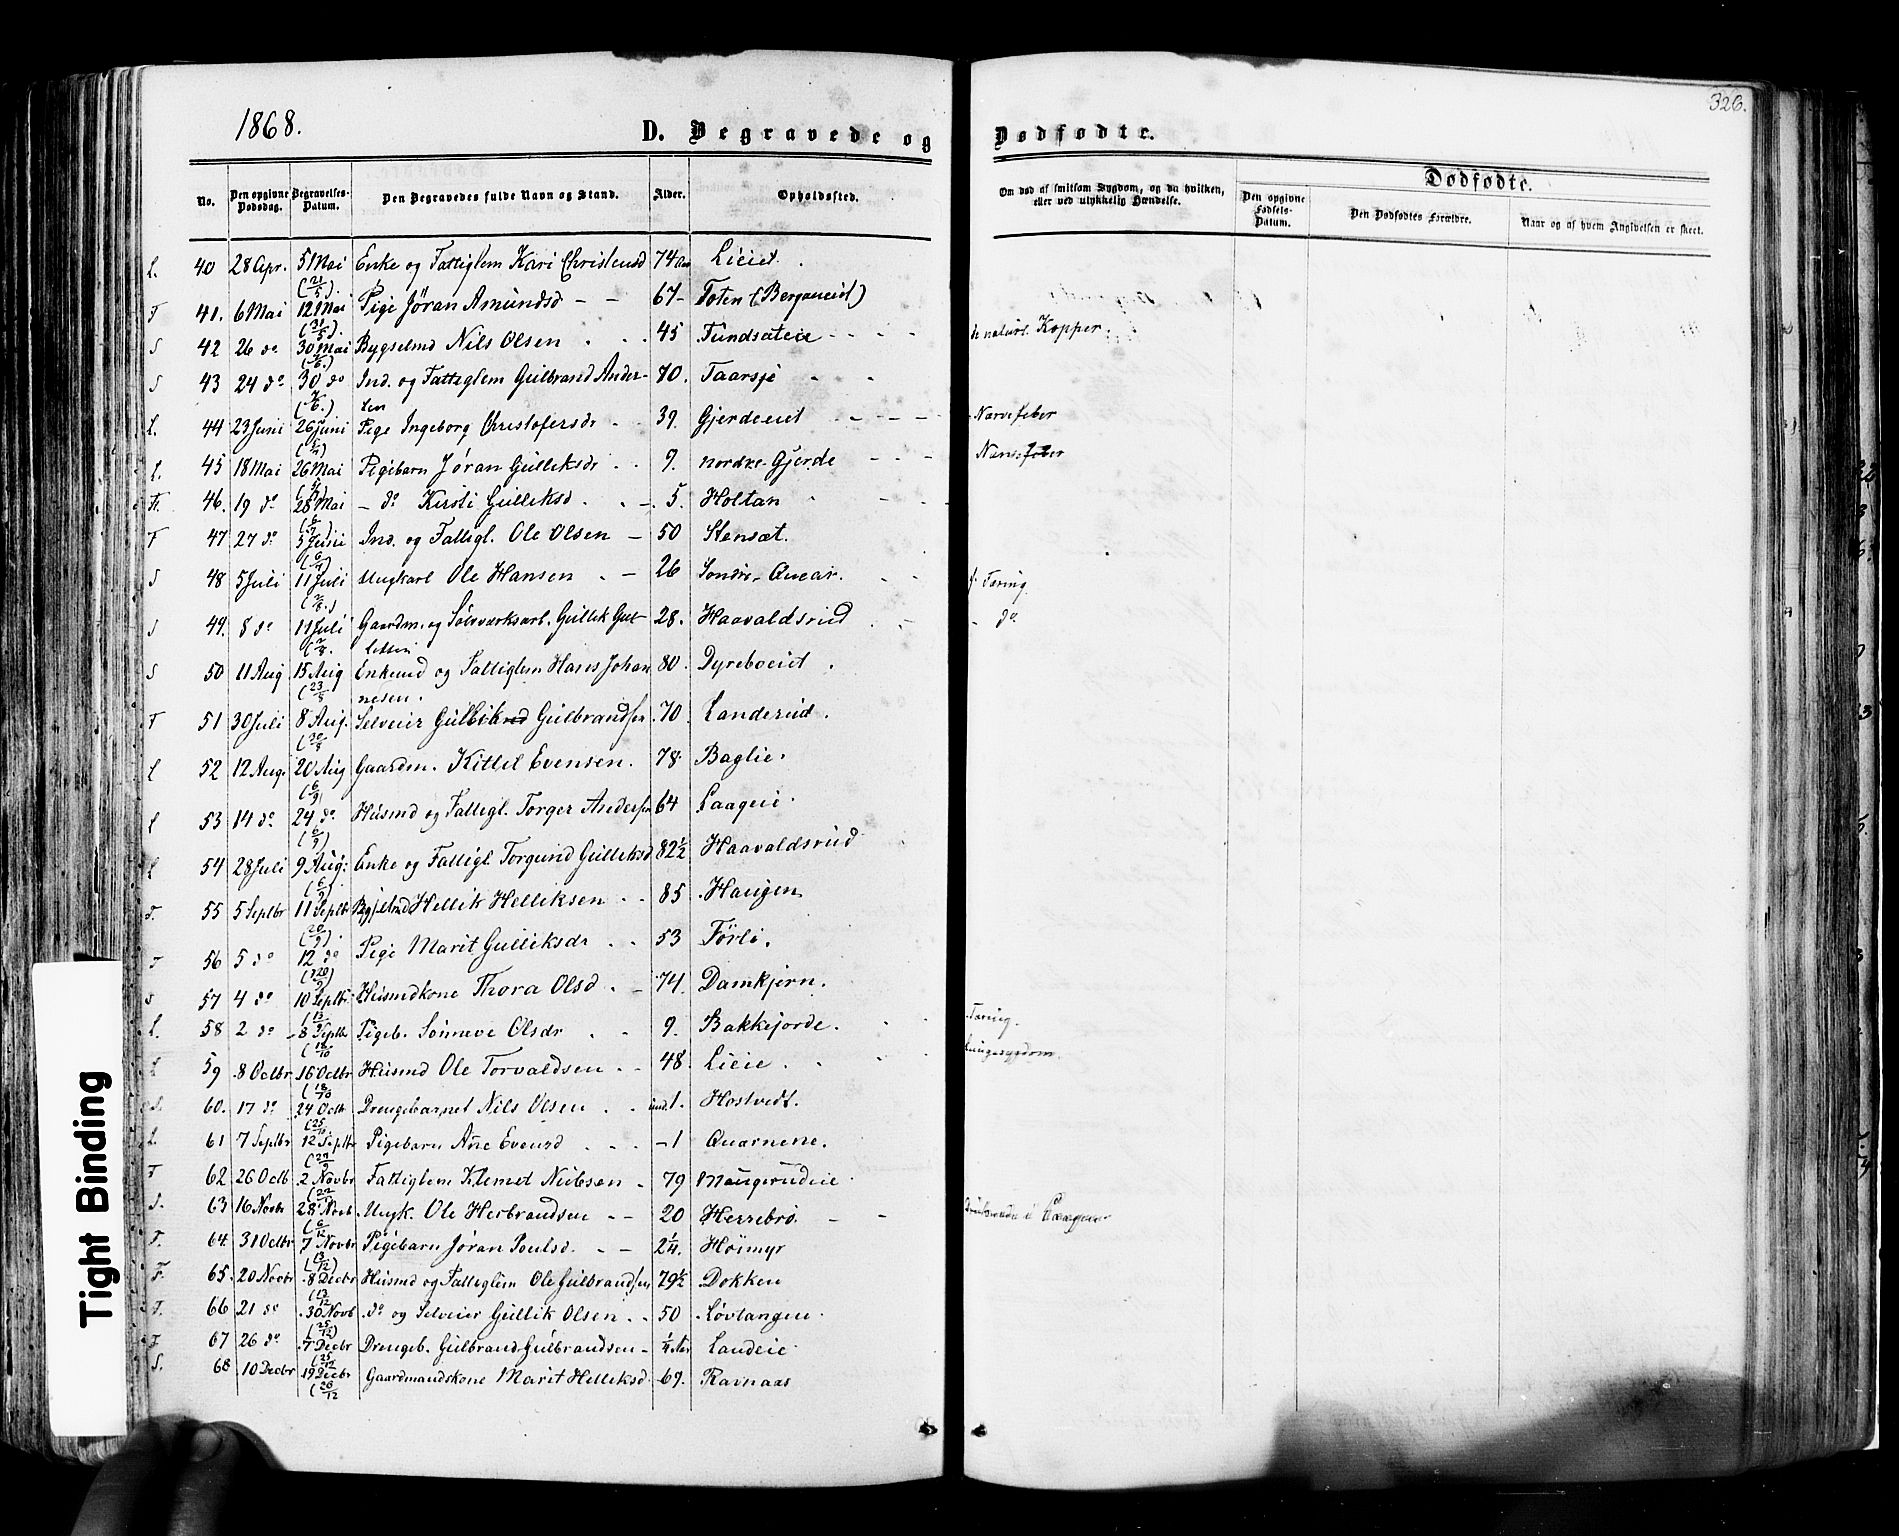 1868.
D. Begravede og Dødfødte.
326.
No.
Den opgivne Dødsdag.
Begravelses-Datum.
Den Begravedes fulde Navn og Stand.
Alder.
Opholdssted.
Om død af smitsom Sygdom, og da hvilken, eller ved ulykkelig Hændelse.
Dødfødte.
Den opgivne Fødsels-Datum.
Den Dødfødtes Forældre.
Naar og af hvem Angivelsen er skeet.
L. 40 28 Apr. 5 Mai (21/5). Enke og Fattiglem Kari Christensd 74 Aar Lieiet.
T 41. 6 Mai 12 Mai (31/5). Pige Jøran Amundsd - - 67 - Toten (Berganeiet)
S 42 26 do 30 Mai Bygselmd Nils Olsen 45 Tundsateie de naturl. Kopper.
S 43 24 do 30 do Ind. og Fattiglem Gulbrand Ander-sen 70. Taarsje
L. 44 23 Juni 26 Juni Pige Ingeborg Christofersdr - 39. Gjerdeeiet Nervefeber
L. 45 18 Mai 26 Mai Pigebarn Jøran Gulliksdr 9. nordre-Gjerde Nervefeber
Fl. 46. 19 do 28 Mai - do Kirsti Gulliksd 5. Holtan
T 47 27 do 5 Juni Ind. og Fattigl. Ole Olsen - 50 Stensæt.
S 48 5 Juli 11 Juli Ungkarl Ole Hansen - 26 Søndre-Quear. Tæring
S 49. 8 do 11 Juli Gaardm. og Sølvværksarb. Gullik Gul- 28. Haavaldsrud - do
S 50 11 Aug 15 Aug (23/8) Enkemd og Fattiglem Hans Johan nesen. 80. Dyreboeiet
T 51 30 Juli 8 Aug. (30/8) Selveier Gulbrandsen 70. Landerud.
L 52 12 Aug. 20 Aug (6/9) Gaardm. Kittil Evensen. 78. Baglie.
L 53 14 do 24 do (6/9) Husmd og Fattigl. Torger Andersen 64 Laageie
L 54 28 Juli 9 Aug. (6/9) Enke og Fattigl. Torgund Gulliksd 82½ Haavaldsrud
T. 55 5 Septbr 11 Septbr (20/9). Hellik Helliksen 85 Haugen
T 56 5 do 12 do Pige Marit Gulliksdr 53 Førli.
S 57 4 do 10 Septbr Husmdkone Thora Olsd. - 74. Damkjern.
L. 58 2 do 8 Septb Pigeb. Sønneve Olsdr 9. Bakkejorde. Tæring.
L 59 8 Octbr 16 Octbr (18/10) Husmd Ole Torvaldsen 48 Lieie. Lungesygdom
S. 60. 17 do 24 Octb (25/10) Drengebarnet Nils Olsen und. 1. Hostvedt.
L. 61 7 Septbr 12 Septbr (27/9) Pigebarn Ane Evensd - 1 Quarnene.
T 62 26 Octb 2 Novbr Fattiglem Klemet Nubsen - 79 Maugerudeie
S. 63 16 Novbr 28 Novb. (6/12) Ungk. Ole Herbrandsen - - 20 Herrebrø.
T. 64. 31 Octbr 7 Novbr (13/12) Pigebarn Jøran Poulsd. - - 2¼. Høimyr
F. 65. 20 Novbr 8 Decbr (13/12) Husmd og Fattiglem Ole Gulbrandsen 79½ Dokken
T. 66 21 do 30 Novb (25/12) do og Selveier Gullik Olsen 50 Løvtangen
F. 67 26 do 7 Decbr (25/12) Drengeb. Gulbrand Gulbrandsen - ¼ Aar Landeie
S. 68 10 Decbr 19 Decbr (26/12) Gaardmandskone Marit Helliksd. 69. Ravnaas
Tight Binding